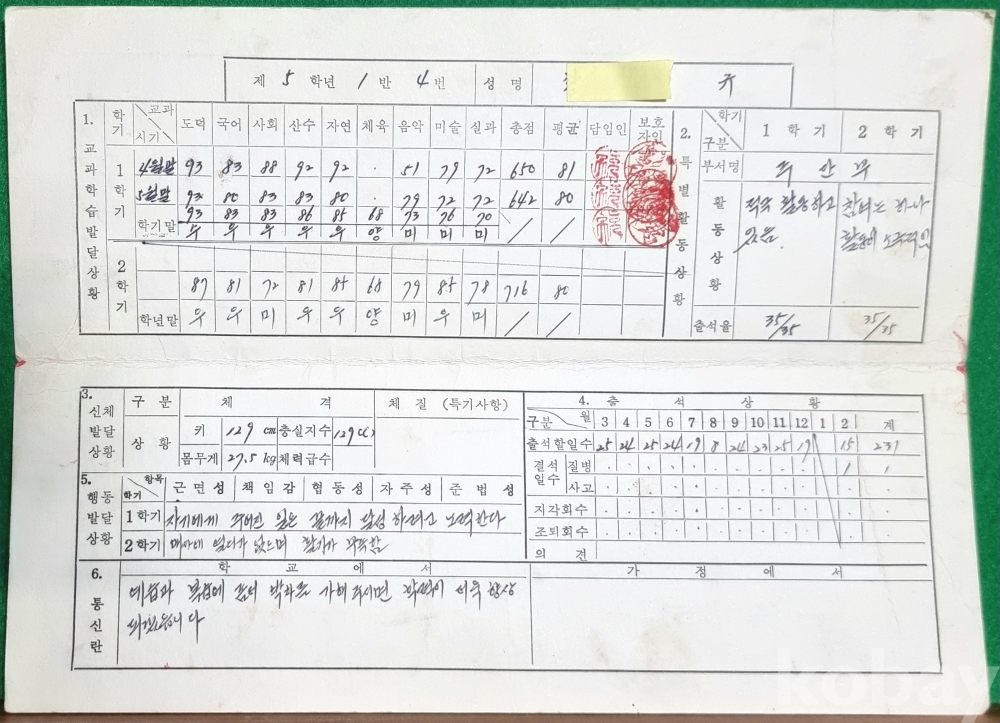 제 5 학년 1 반 4 번 성 명 규
1. 교과학습발달상황
학기 교과 시기 도덕 국어 사회 산수 자연 체육 음악 미술 실과 총점 평균 담임인 보호자인
1학기 4월말 93 83 88 92 92 · 51 79 72 650 81
5월말 93 80 83 83 80 · 79 72 72 642 80
93 83 83 86 85 68 73 76 70
학기말 우 우 우 우 우 양 미 미 미 / /
2학기 87 81 72 81 85 68 79 85 78 716 80
학년말 우 우 미 우 우 양 미 우 미 / /
2. 특별활동상황
학기 구분 1 학 기 2 학 기
부서명 주 산 부
활동상황 적극 활동하고 참여는 하나
있음. 활동이 소극적임
출석율 35/35 35/35
3. 신체발달상황
구 분 체 격 체 질 (특기사항)
상 황 키 129 cm 충실지수
몸무게 27.5 kg 체력급수
4. 출 석 상 황
구분 월 3 4 5 6 7 8 9 10 11 12 1 2 계
출석할일수 25 24 25 24 19 8 24 23 25 19 15 231
결석일수 질병 · · · · · · · · · · 1 1
사고
지각회수
조퇴회수
의 견
5. 행동발달상황
항목 학기 근 면 성 책 임 감 협 동 성 자 주 성 준 법 성
1학기 자기에게 주어진 일은 끝까지 달성 하려고 노력한다
2학기 매사에 열의가 없으며 활기가 부족함
6. 통신란
학 교 에 서 가 정 에 서
예습과 복습에 좀더 박차를 가해 주시면 학력이 더욱 향상
되겠습니다
kobay